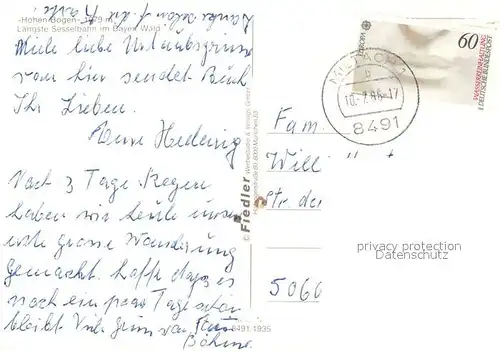 Danke schon f. die Karte!
-Hohen Bogen - 1079 m
Längste Sesselbahn im Bayer. Wald
Viele liebe Urlaubsgrüsse
von hier sendet Euch
Ihr Lieben.
Eure Hedwig
Nach 3 Tage Regen
haben wir heute unsere
erste grosse Wanderung
gemacht. Hoffe dass es
noch ein paar Tage schön
bleibt. Viele Grüsse von
Böhme
© Fiedler Werbebild & Verlags GmbH
8491/1935
EUROPA
60
WASSERREINHALTUNG
DEUTSCHE BUNDESPOST
b
10.-7.86-17
8491
Fam.
Willi
Str
5060
privacy protection
Datenschutz